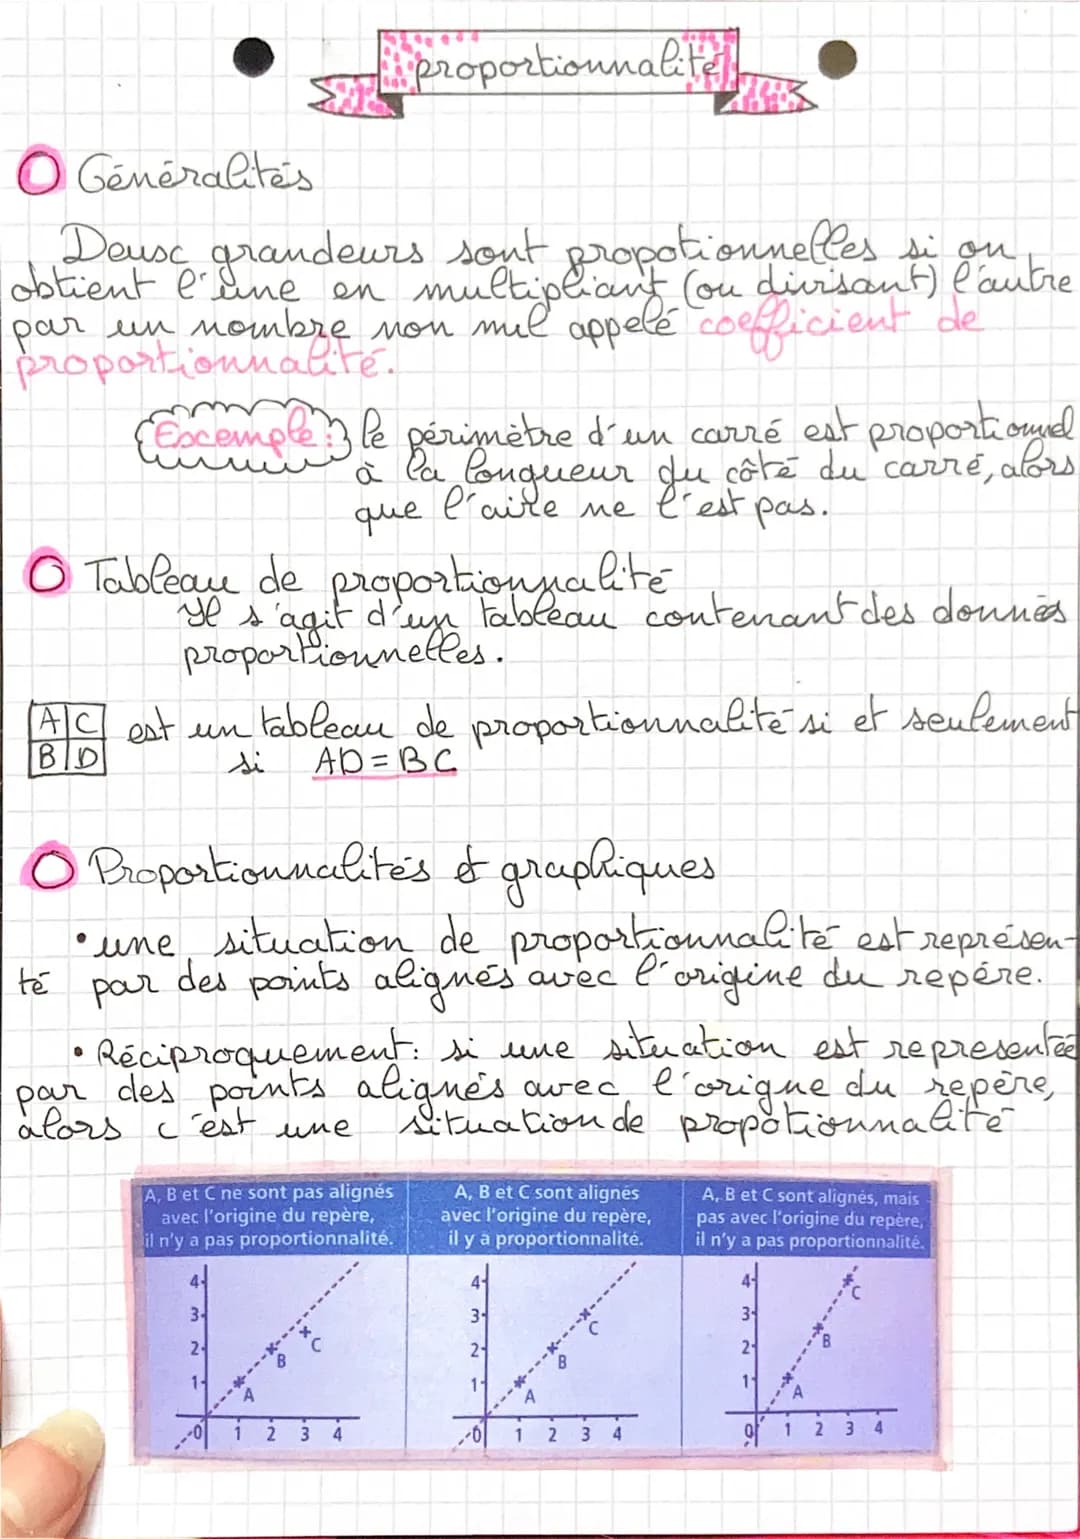 proportionnalité
Généralités
Deux grandeurs sont propotionnelles si on
obtient l'une en multipliant (ou divisant) l'autre
par un nombre non nul appelé coefficient de
proportionnalité.
Exemple: le périmètre d'un carré est proportionnel
à la longueur du côté du carré, alors
que l'aire ne l'est pas.
Tableau de proportionnalité
Il s'agit d'un tableau contenant des donnés
proportionnelles.
A C est un tableau de proportionnalité si et seulement
B D si AD = BC
Proportionnalités et graphiques
• une situation de proportionnalité est représen-
té par des points alignés avec l'origine du repére.
• Réciproquement: si une situation est representée
par des points alignés avec l'origne du repère,
alors c'est une situation de propotionnalité
A, B et C ne sont pas alignés
avec l'origine du repère,
il n'y a pas proportionnalité.
4
3
2
1
C
B
A
0 1 2 3 4
A, B et C sont alignés
avec l'origine du repère,
il y a proportionnalité.
4
3
2
1
C
B
A
0 1 2 3 4
A, B et C sont alignés, mais
pas avec l'origine du repère,
il n'y a pas proportionnalité.
4
3
2
1
C
B
A
0 1 2 3 4